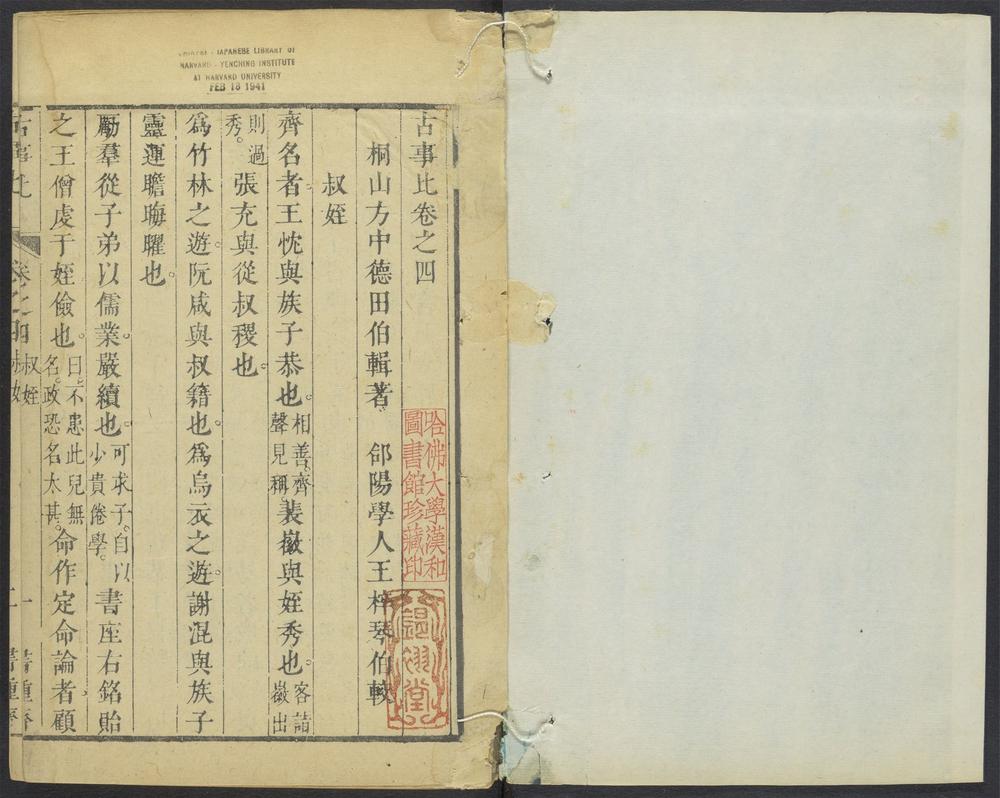 JAPANESE LIBRARY OF
HARVARD-YENCHING INSTITUTE
AT HARVARD UNIVERSITY
FEB 18 1941
古事比卷之四
桐山方中德田伯輯著 郃陽學人王梓琴伯較
叔姪
齊名者王忱與族子恭也。相善。齊聲見稱。裴徽與姪秀也。客詣徽出
則過秀。張充與從叔稷也。
爲竹林之遊。阮咸與叔籍也。爲烏衣之遊。謝混與族子
靈運瞻晦曜也。
勵羣從子弟以儒業。嚴續也。可求子。自以少貴倦學。書座右銘貽
之王僧虔于姪儉也。曰。不患此兒無名。政恐名太甚。命作定命論者顧
古事比 卷之四 叔姪 一 書種齋
哈佛大學漢和
圖書館珍藏印